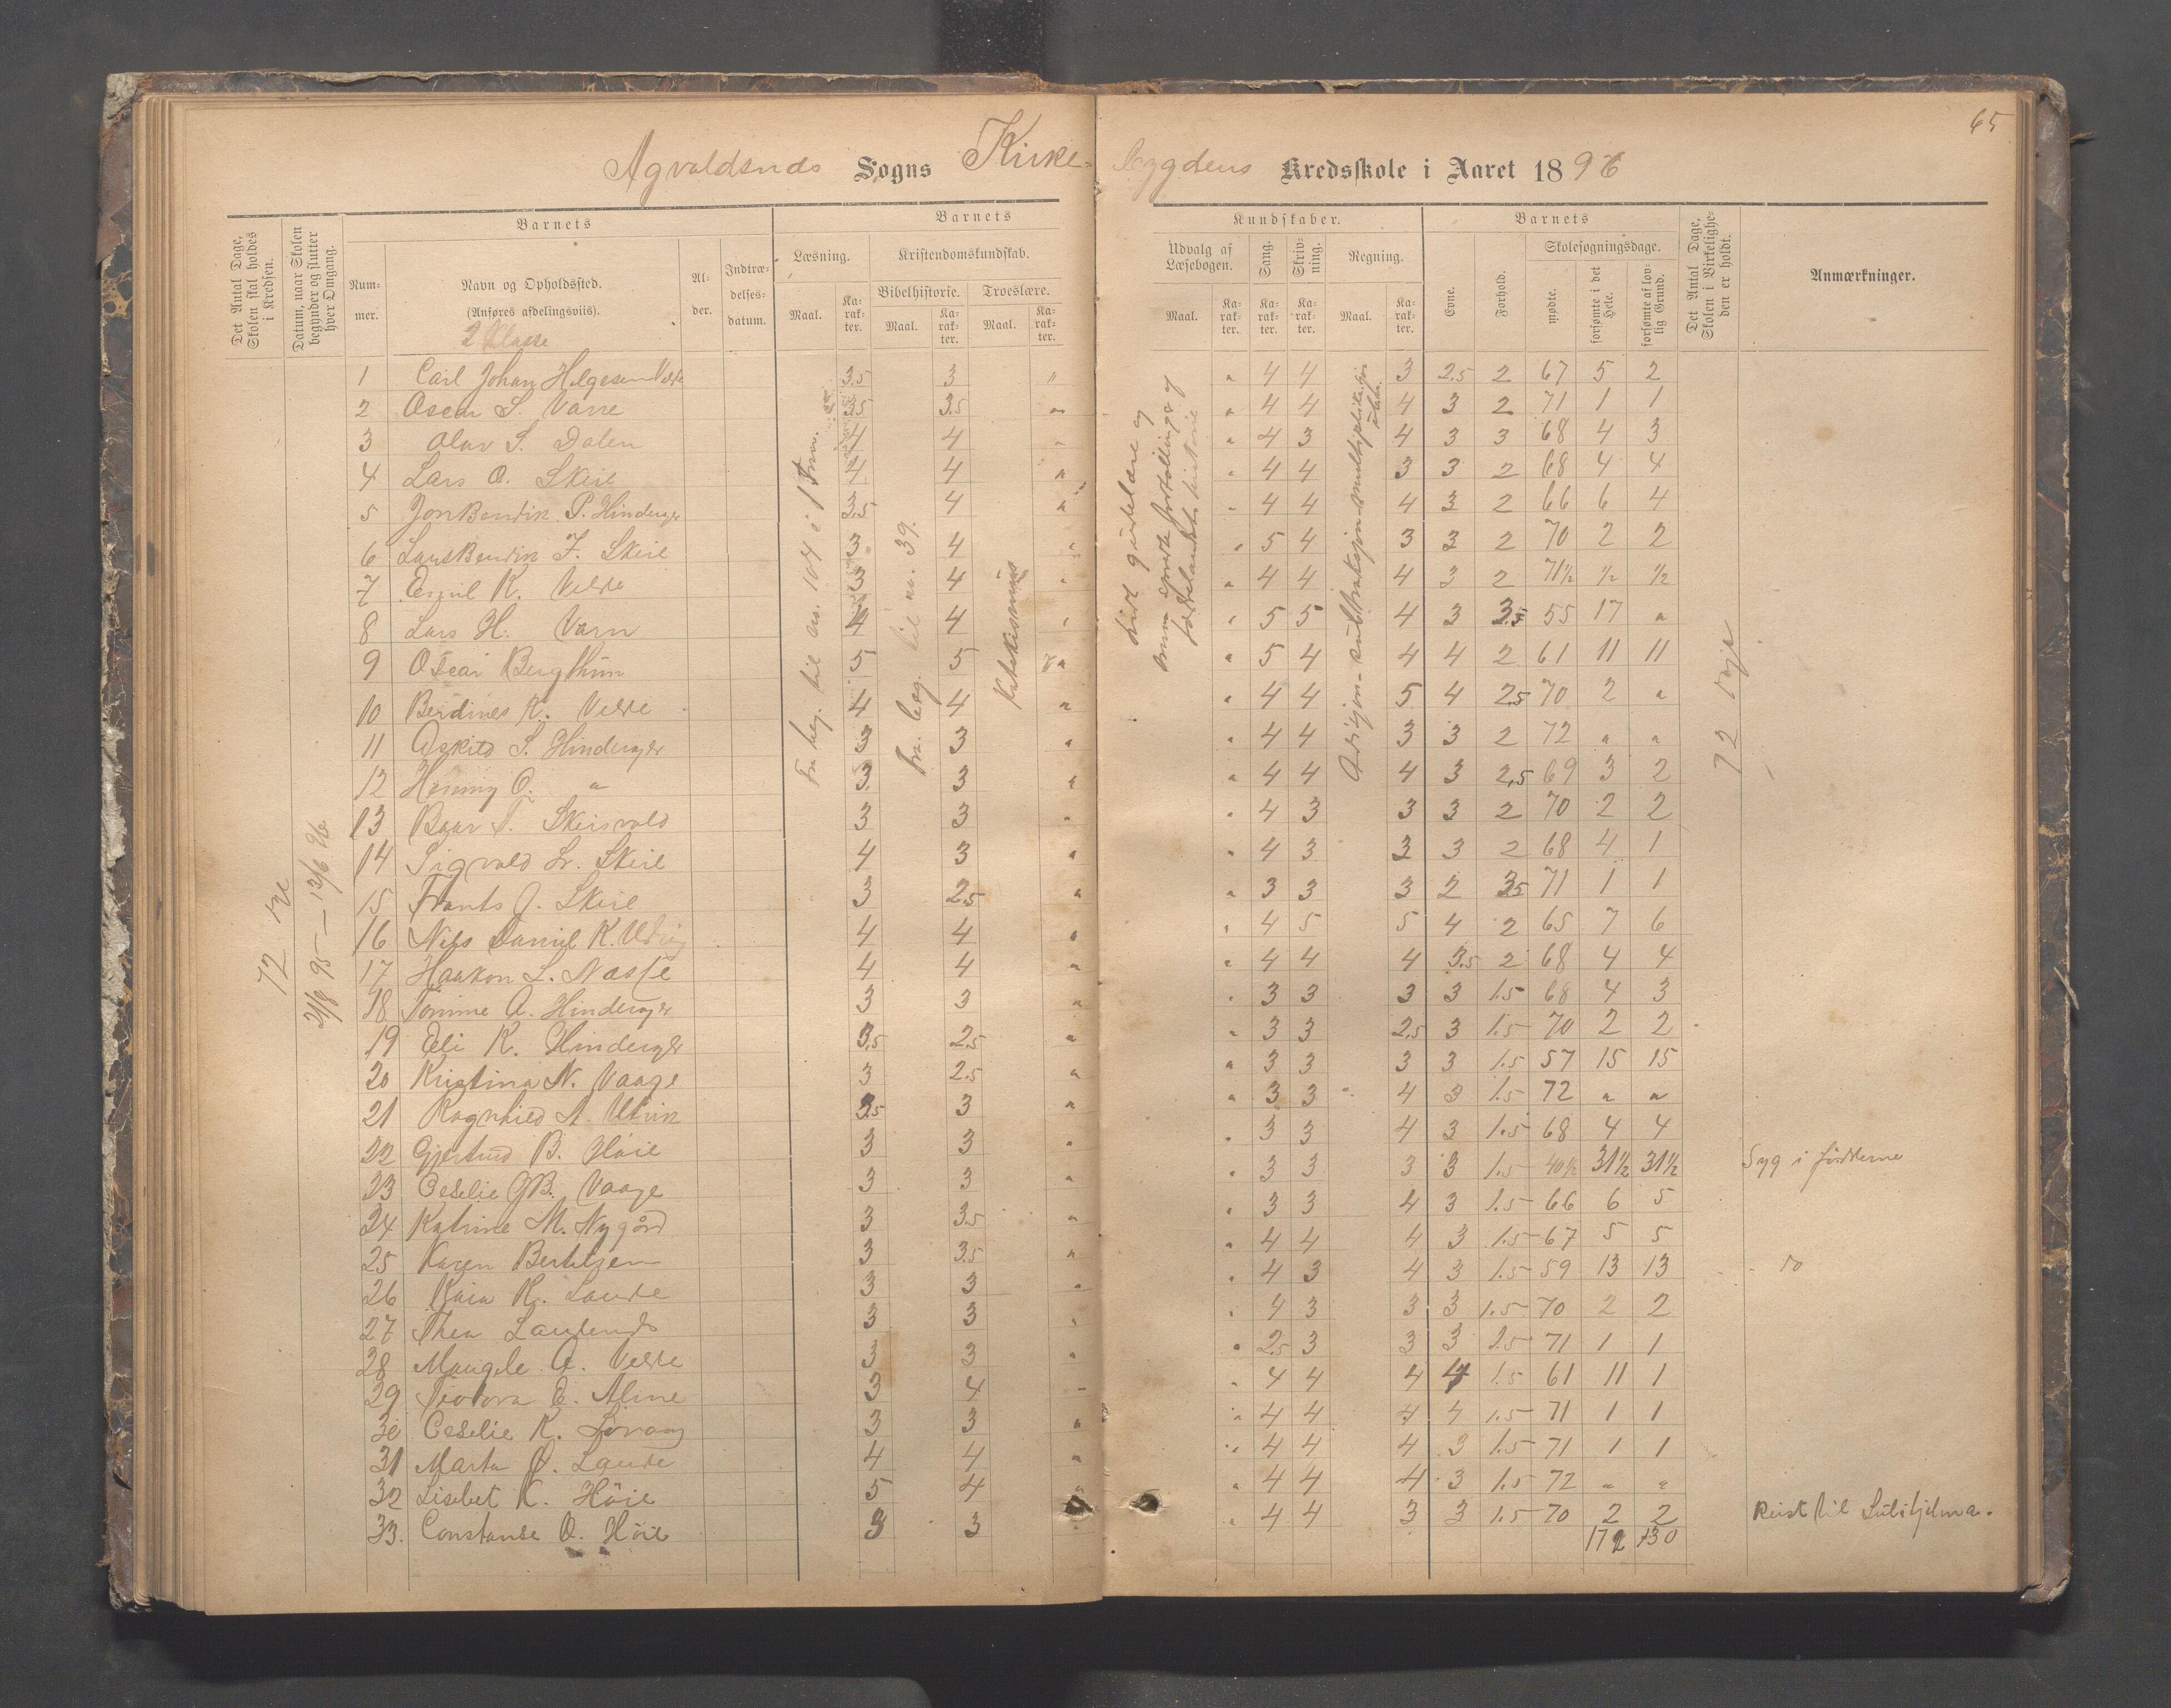 65
Agvaldsnes Sogns Kirke-
bygdens Kredsskole i Aaret 1896
Det Antal Dage, Skolen skal holdes i Kredsen.
Datum, naar Skolen begynder og slutter hver Omgang.
Barnets
Nummer.
Navn og Opholdssted.
(Anføres afdelingsviis).
2 Klasse
Alder.
Indtrædelsesdatum.
Barnets
Læsning.
Kristendomskundskab.
Bibelhistorie. Troeslære.
Maal. Karakter. Maal. Karakter. Maal. Karakter.
Kundskaber.
Udvalg af Læsebogen.
Sang.
Skrivning.
Regning.
Maal. Karakter. Karakter. Karakter. Maal. Karakter.
Barnets
Evne.
Forhold.
Skolesøgningsdage.
mødte.
forsømte i det Hele.
forsømte af lovlig Grund.
Det Antal Dage, Skolen i Virkeligheden er holdt.
Anmærkninger.
72
21/8 95 — 13/6 96
Fra beg. til
Fra beg. til no. 39.
Katekismus
72 dage
1 Carl Johan Helgesen Velde 3.5 3 " " 4 4 3 2.5 2 67 5 2
2 Oscar S. Varre 3.5 3.5 " " 4 4 4 3 2 71 1 1
3 Olav S. Dalen 4 4 " " 4 3 4 3 3 68 4 3
4 Lars O. Skeie 4 4 " " 4 4 3 3 2 68 4 4
5 Jon Bendik P. Hinderager 3.5 4 " " 4 4 4 3 2 66 6 4
6 Lars Bendik J. Skeie 3 4 " " 5 4 3 3 2 70 2 2
7 Emil K. Velde 3 4 " " 4 4 4 3 2 71½ ½ ½
8 Lars H. Varn 4 4 " " 5 5 4 3 3.5 55 17 "
9 Oscar Bergthun 5 5 " " 5 4 4 4 2 61 11 11
10 Berdines K. Velde 4 4 " " 4 4 5 4 2.5 70 2 "
11 Askild S. Hinderager 3 3 " " 4 4 3 3 2 72 " "
12 Henny O. " 3 3 " " 4 4 4 3 2.5 69 3 2
13 Baar T. Skeisvold 3 3 " " 4 3 3 3 2 70 2 2
14 Sigvald Lr. Skeie 4 3 " " 4 3 3 3 2 68 4 1
15 Frants J. Skeie 3 2.5 " " 3 3 3 2 3.5 71 1 1
16 Nils Daniel K. 4 4 " " 4 5 5 4 2 65 7 6
17 Haakon L. Nasse 4 4 " " 4 4 4 3.5 2 68 4 4
18 Tomine A. Hinderager 3 3 " " 3 3 3 3 1.5 68 4 3
19 Eli K. Hinderager 3.5 2.5 " " 3 3 2.5 3 1.5 70 2 2
20 Kristina N. Vaage 3 2.5 " " 3 3 3 3 1.5 57 15 15
21 Ragnhild A. Utvik 3.5 3 " " 3 3 4 3 1.5 72 " "
22 Gjertrud B. Høie 3 3 " " 3 3 4 3 1.5 68 4 4
23 Ceselie GB. Vaage 3 3 " " 3 3 3 3 1.5 40½ 31½ 31½ Syg i føtterne
24 Katrine M. Nygård 3 3.5 " " 3 3 4 3 1.5 66 6 5
25 Karen Bertelsen 3 3.5 " " 4 4 4 3 1.5 67 5 5
26 Kaia K. Lande 3 3 " " 4 3 4 3 1.5 59 13 13 - do
27 Thea 3 3 " " 4 3 3 3 1.5 70 2 2
28 Maugele A. Velde 3 3 " " 2.5 3 3 3 1.5 71 1 1
29 Teodora E. Aline 3 4 - " 4 4 4 4 1.5 61 11 1
30 Ceselie K. 3 3 " " 4 4 4 4 1.5 71 1 1
31 Marta O. Lande 4 4 " " 4 4 4 3 1.5 71 1 1
32 Lisebet K. Høie 5 4 " " 4 4 4 3 1.5 72 " "
33. Constanse O. Høie 3 3 " " 4 4 3 3 1.5 70 2 2 Reist til
172 130